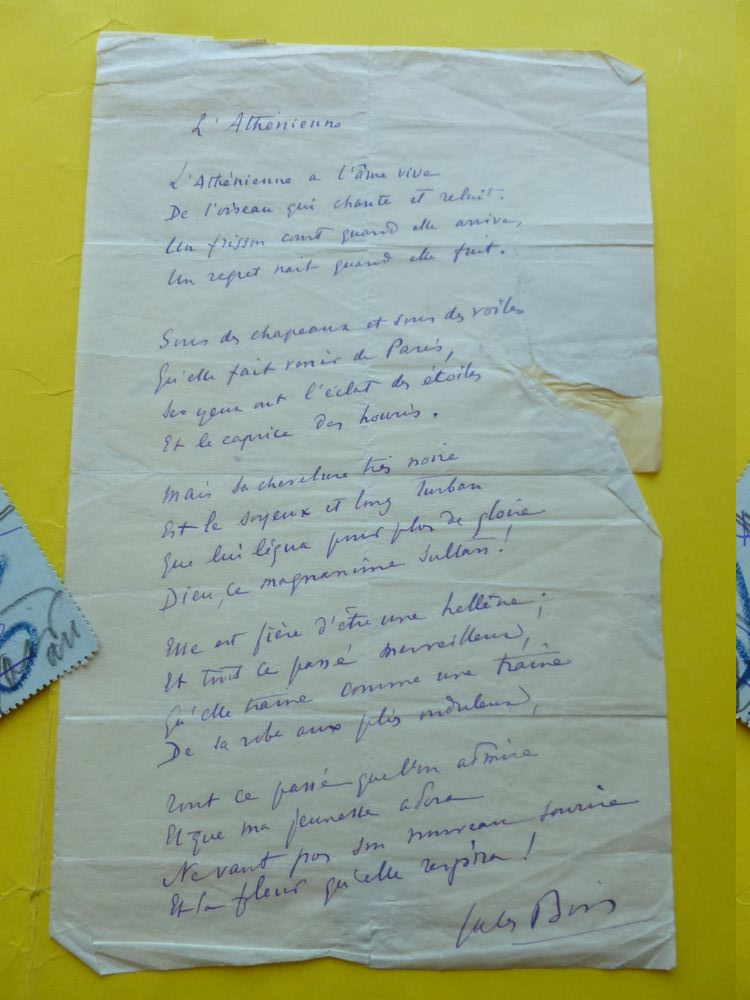 L'Athénienne
L'Athénienne a l'âme vive
De l'oiseau qui chante et reluit.
Un frisson court quand elle arrive,
Un regret naît quand elle fuit.
Sous des chapeaux et sous des voiles
Qu'elle fait venir de Paris,
Ses yeux ont l'éclat des étoiles
Et le caprice des houris.
Mais sa chevelure très noire
Est le soyeux et long turban
Que lui légua pour plus de gloire
Dieu, ce magnanime Sultan!
Elle est fière d'être une hellène;
Et tout ce passé merveilleux,
Qu'elle traîne comme une traîne
De sa robe aux plis onduleux,
Tout ce passé que l'on admire
Et que ma jeunesse adora
Ne vaut pas son nouveau sourire
Et la fleur qu'elle respira!
Jules Bois